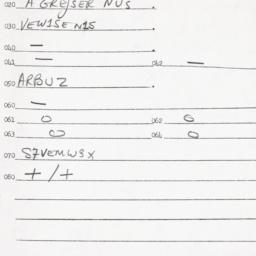 020 A GREJSER NUS .
030 VEW1SEN15 .
040 — .
041 — 042 —
050 ARBUZ .
060 —
061 O 062 O
063 O 064 O
070 S7VEMW9X
080 + / +